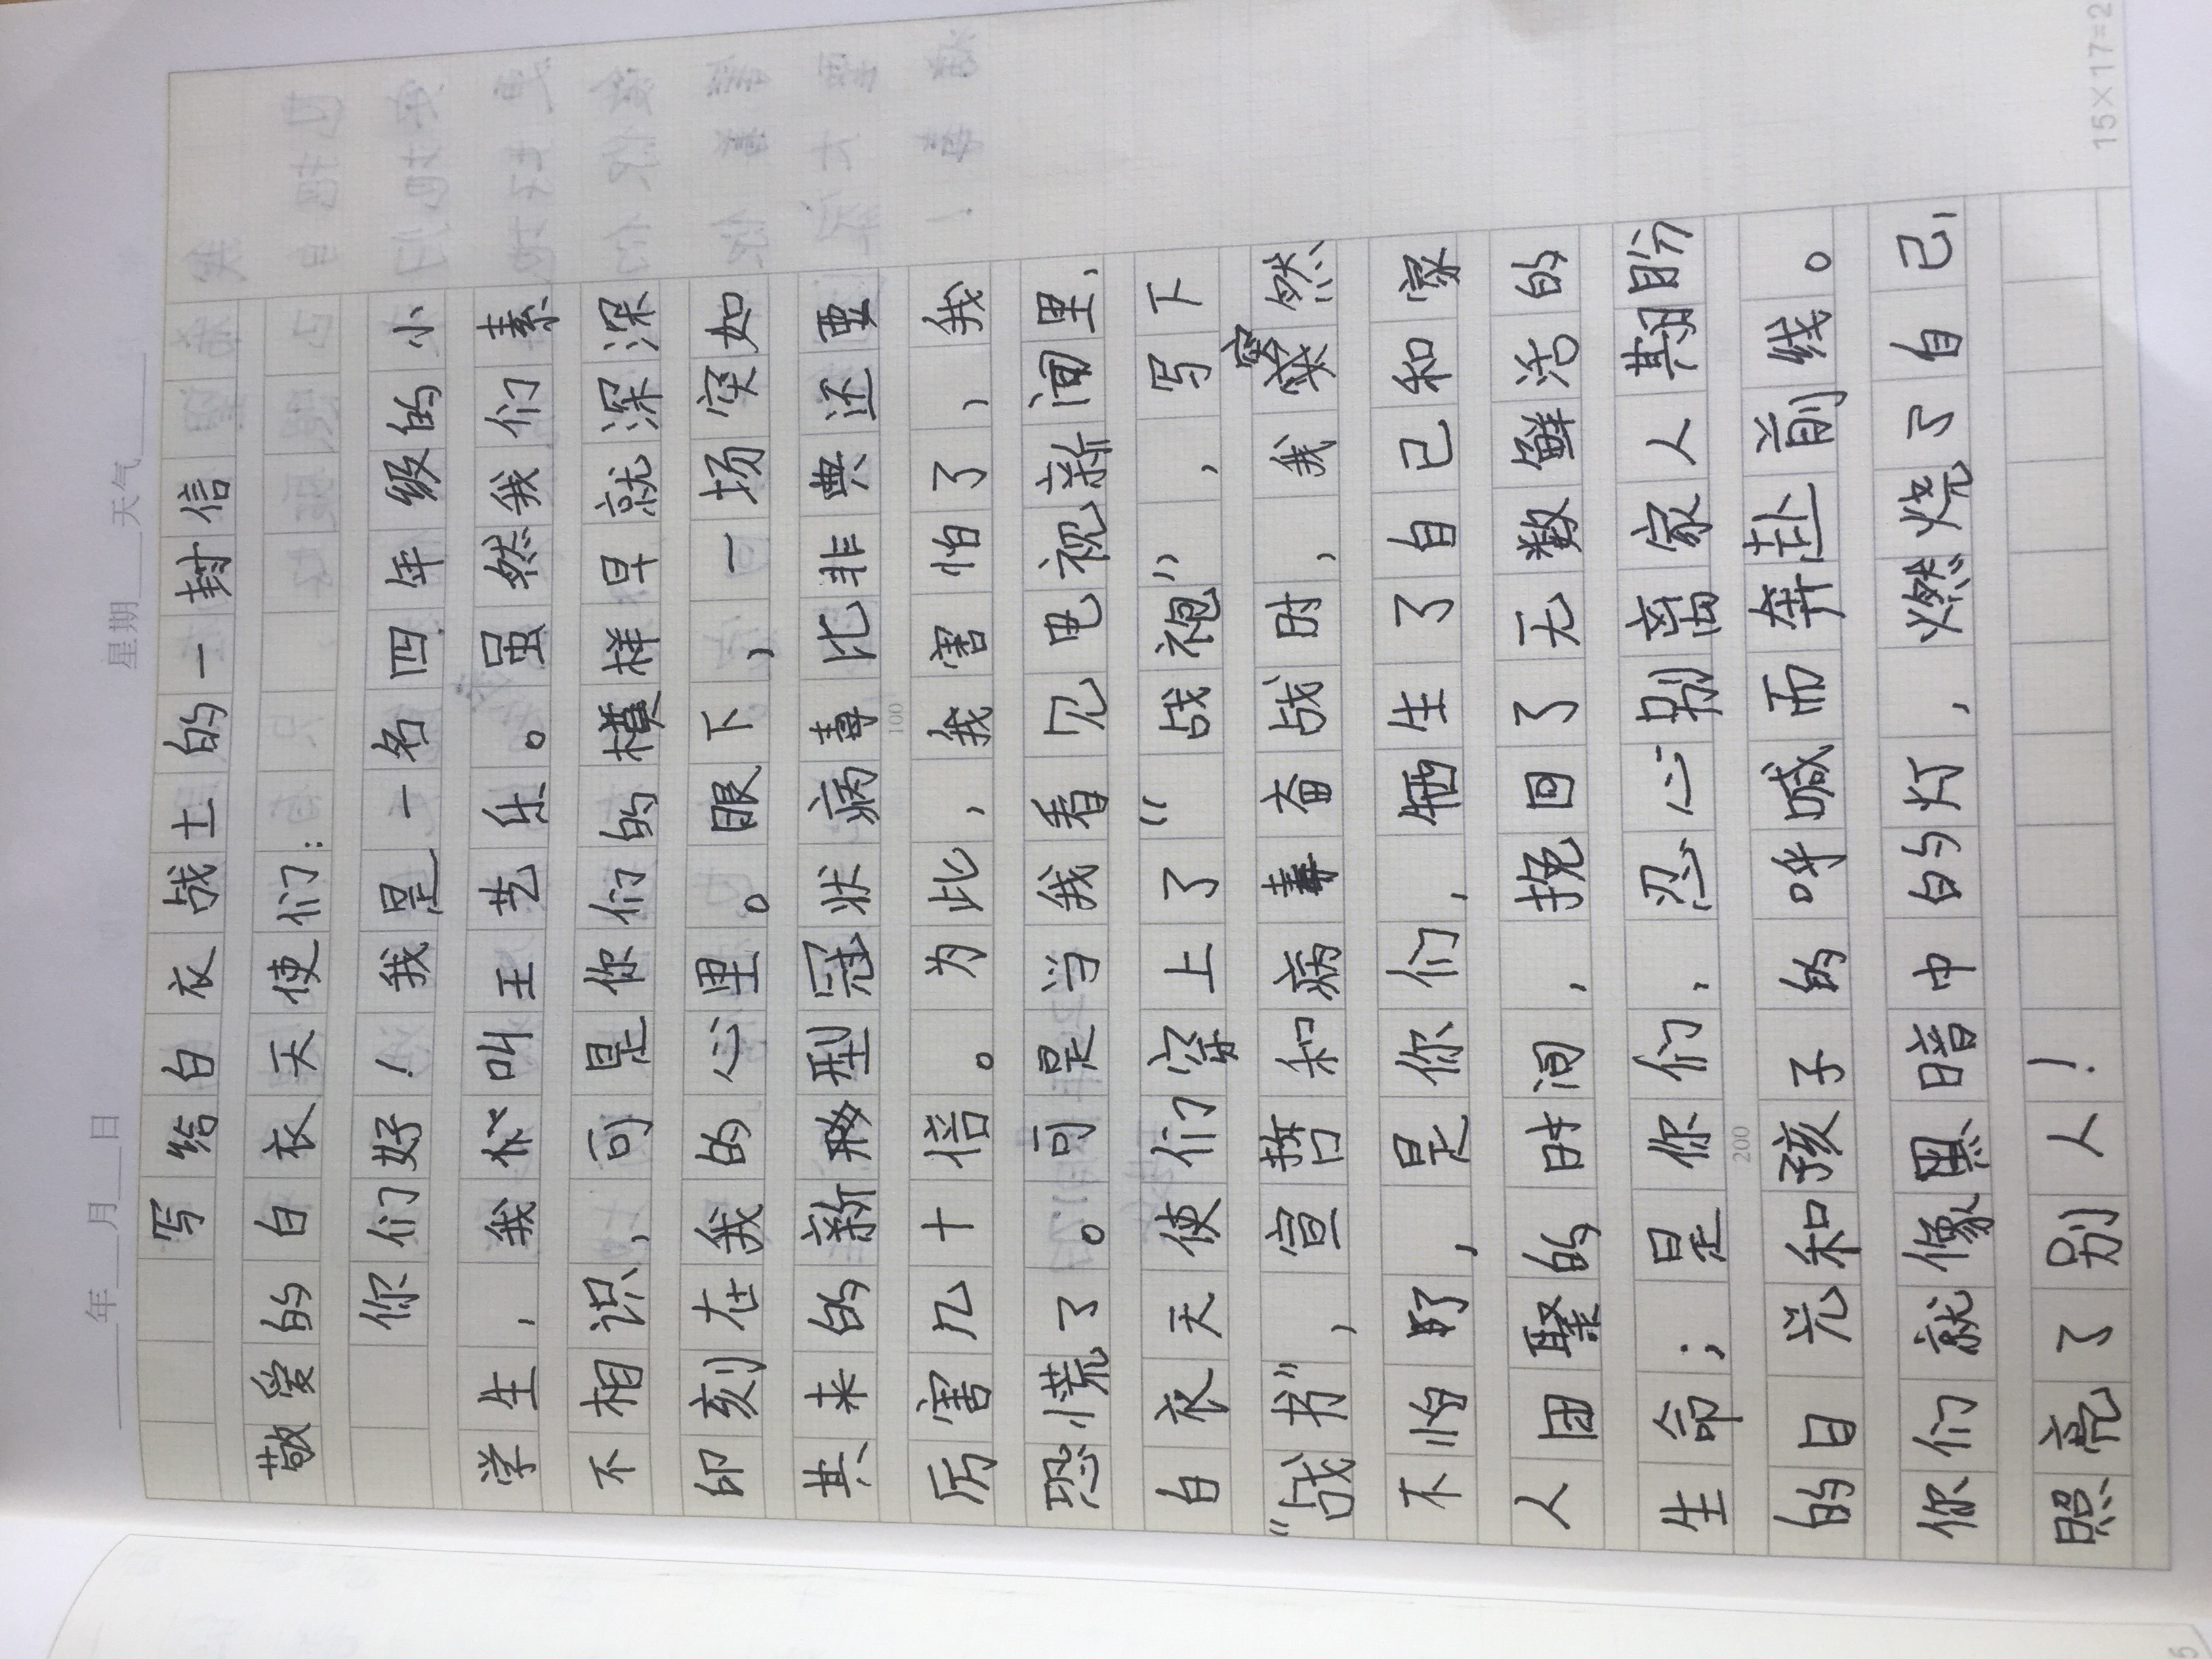 ____年___月___日 星期____天气____
写给白衣战士的一封信
敬爱的白衣天使们:
你们好!我是一名四年级的小
学生,我叫王艺乐。虽然我们素
不相识,可是你们的模样早就深深
印刻在我的心里。眼下,一场突如
其来的新型冠状病毒比非典还要
厉害几十倍。为此,我害怕了,我
恐慌了。可是当我看见电视新闻里,
白衣天使们穿上了“战袍”,写下
“战书”,宣誓和病毒奋战时,我突然
不怕了,是你们,牺牲了自己和家
人团聚的时间,挽回了无数鲜活的
生命;是你们,忍心别离家人期盼
的目光和孩子的呼喊而奔赴前线。
你们就像黑暗中的灯,燃烧了自己,
照亮了别人!
100
200
15×17=2